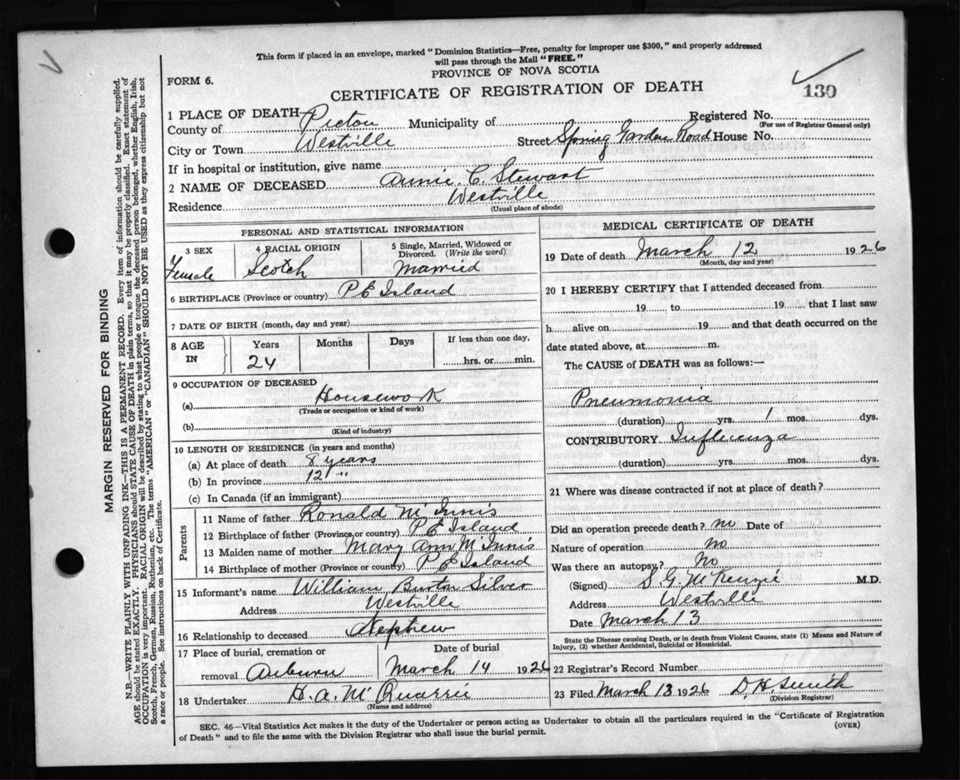 This form if placed in an envelope, marked "Dominion Statistics—Free, penalty for improper use $300," and properly addressed
will pass through the Mail "FREE."
PROVINCE OF NOVA SCOTIA
FORM 6.
CERTIFICATE OF REGISTRATION OF DEATH
130
1 PLACE OF DEATH
County of Pictou Municipality of Registered No.
(For use of Registrar General only)
City or Town Westville Street Spring Garden Road House No.
If in hospital or institution, give name
2 NAME OF DECEASED Annie C. Stewart
Residence Westville
(Usual place of abode)
PERSONAL AND STATISTICAL INFORMATION
3 SEX 4 RACIAL ORIGIN 5 Single, Married, Widowed or Divorced. (Write the word)
Female Scotch Married
6 BIRTHPLACE (Province or country) P E Island
7 DATE OF BIRTH (month, day and year)
8 AGE IN Years Months Days If less than one day,
24 hrs. or min.
9 OCCUPATION OF DECEASED
(a) Housework
(Trade or occupation or kind of work)
(b)
(Kind of industry)
10 LENGTH OF RESIDENCE (in years and months)
(a) At place of death 8 years
(b) In province 12 "
(c) In Canada (if an immigrant)
Parents
11 Name of father Ronald McInnis
12 Birthplace of father (Province or country) P E Island
13 Maiden name of mother Mary Ann McInnis
14 Birthplace of mother (Province or country) P E Island
15 Informant's name William Burton Silver
Address Westville
16 Relationship to deceased Nephew
17 Place of burial, cremation or removal Date of burial
Auburn March 14 1926
18 Undertaker H. A. McQuarrie
(Name and address)
MEDICAL CERTIFICATE OF DEATH
19 Date of death March 12 1926
(Month, day and year)
20 I HEREBY CERTIFY that I attended deceased from
19 to 19 that I last saw
h alive on 19 and that death occurred on the
date stated above, at m.
The CAUSE of DEATH was as follows:—
Pneumonia
(duration) yrs. 1 mos. dys.
CONTRIBUTORY Influenza
(duration) yrs. mos. dys.
21 Where was disease contracted if not at place of death?
Did an operation precede death? no Date of
Nature of operation no
Was there an autopsy? No
(Signed) S G McKenzie M.D.
Address Westville
Date March 13
State the Disease causing Death, or in death from Violent Causes, state (1) Means and Nature of
Injury, (2) whether Accidental, Suicidal or Homicidal.
22 Registrar's Record Number
23 Filed March 13 1926 D H Smith
(Division Registrar)
SEC. 46—Vital Statistics Act makes it the duty of the Undertaker or person acting as Undertaker to obtain all the particulars required in the "Certificate of Registration
of Death" and to file the same with the Division Registrar who shall issue the burial permit.
(OVER)
MARGIN RESERVED FOR BINDING
N.B.—WRITE PLAINLY WITH UNFADING INK—THIS IS A PERMANENT RECORD. Every item of information should be carefully supplied.
AGE should be stated EXACTLY. PHYSICIANS should STATE CAUSE OF DEATH in plain terms, so that it may be properly classified. Exact statement of
OCCUPATION is very important. RACIAL ORIGIN will be described by stating to what people or tongue the deceased person belonged, whether English, Irish,
Scotch, French, German, Russian, Ruthenian, etc. The terms "AMERICAN" or "CANADIAN" SHOULD NOT BE USED as they express citizenship but not
a race or people. See instructions on back of Certificate.